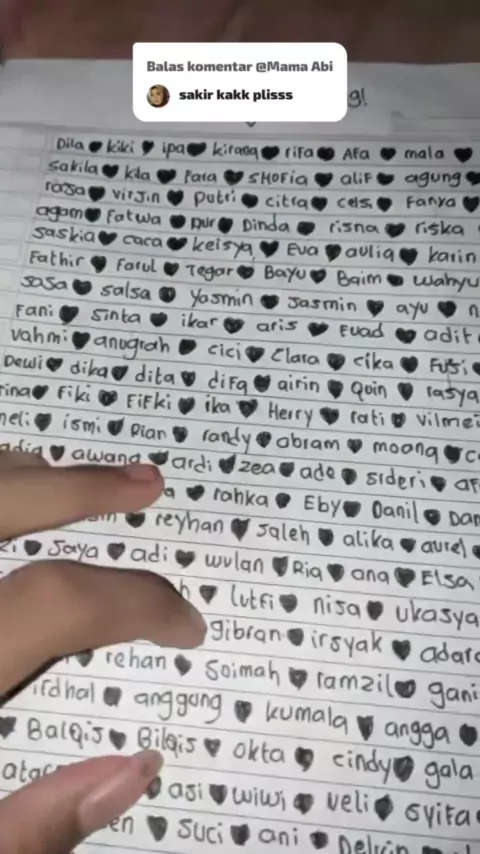 Balas komentar @Mama Abi
sakir kakk plisss
g!
Dila kiki ipa kirana rifa AFA mala
sakila kila Fara SHOFia aliF agung
rasa virjin putri citra cels Fanya
agam Fatwa Nur Dinda risna riska
saskia caca keisya Eva aulia karin
Fathir Farul Tegar Bayu Baim wahyu
sasa salsa yasmin Jasmin ayu n
Fani sinta ikar aris Fuad adit
vahmi anugrah cici Clara cika Fusi
Dewi dika dita diFa airin Quin rasya
rina Fiki FiFki ika Herry rati vilmei
neli ismi Dian randy abram moang c
adia awang ardi zea ade sideri aF
a rahka Eby Danil Dan
reyhan Saleh alika aurel
zi Jaya adi wulan Ria ana Elsa
h lutfi nisa ukasya
gibran irsyak adara
rehan Soimah ramzil gani
irdhal anggung kumala angga
Balqis Bilqis okta cindy gala
atac asi wiwi veli syifa
en Suci ani Delvin